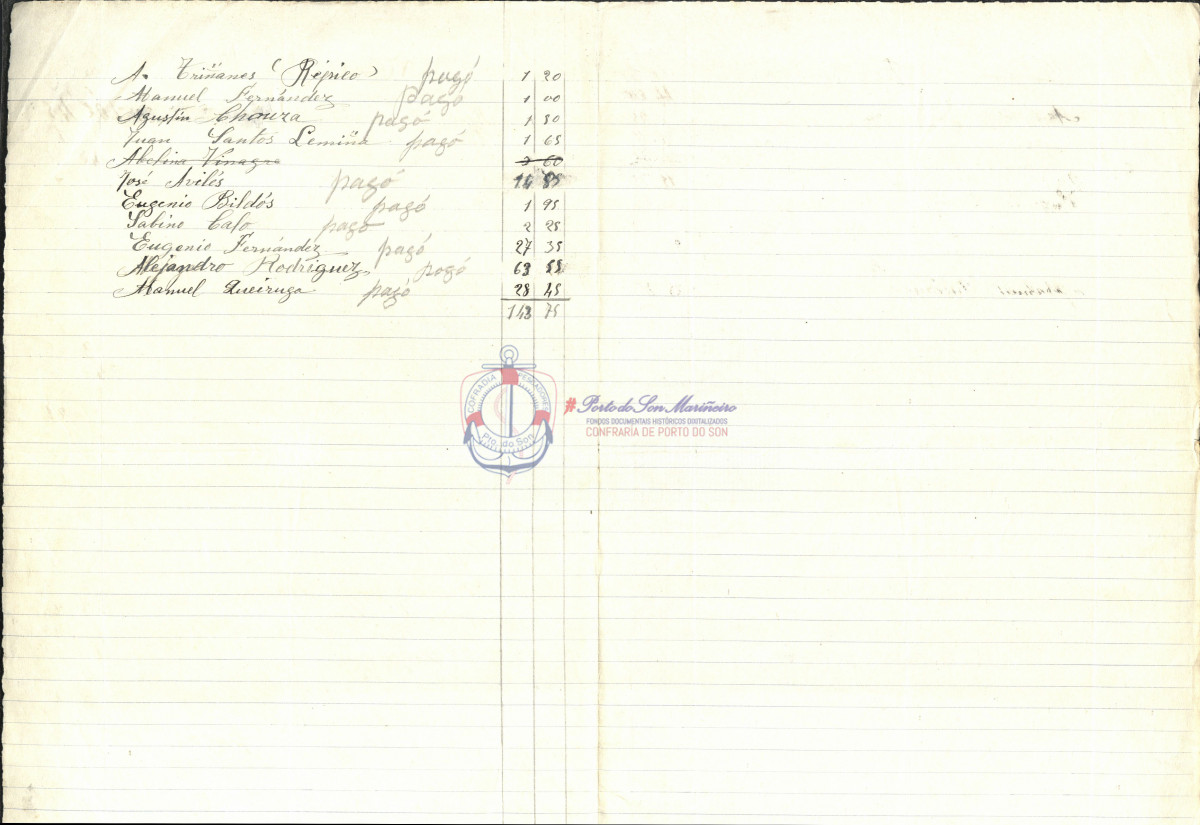 A. Triñanes (Répico) pagó 1 20
Manuel Fernández pagó 1 00
Agustín Chouza pagó 1 50
Juan Santos Lemiña pagó 1 65
Abelina Vinagre 2 60
José Avilés pagó 14 85
Eugenio Bildós pagó 1 95
Sabino Calo pagó 2 25
Eugenio Fernández pagó 27 35
Alejandro Rodríguez pagó 63 55
Manuel Queiruga pagó 28 45
143 75
COFRADIA PESCADORES
Pto. do Son
#Porto do Son Mariñeiro
FONDOS DOCUMENTAIS HISTÓRICOS DIXITALIZADOS
CONFRARÍA DE PORTO DO SON